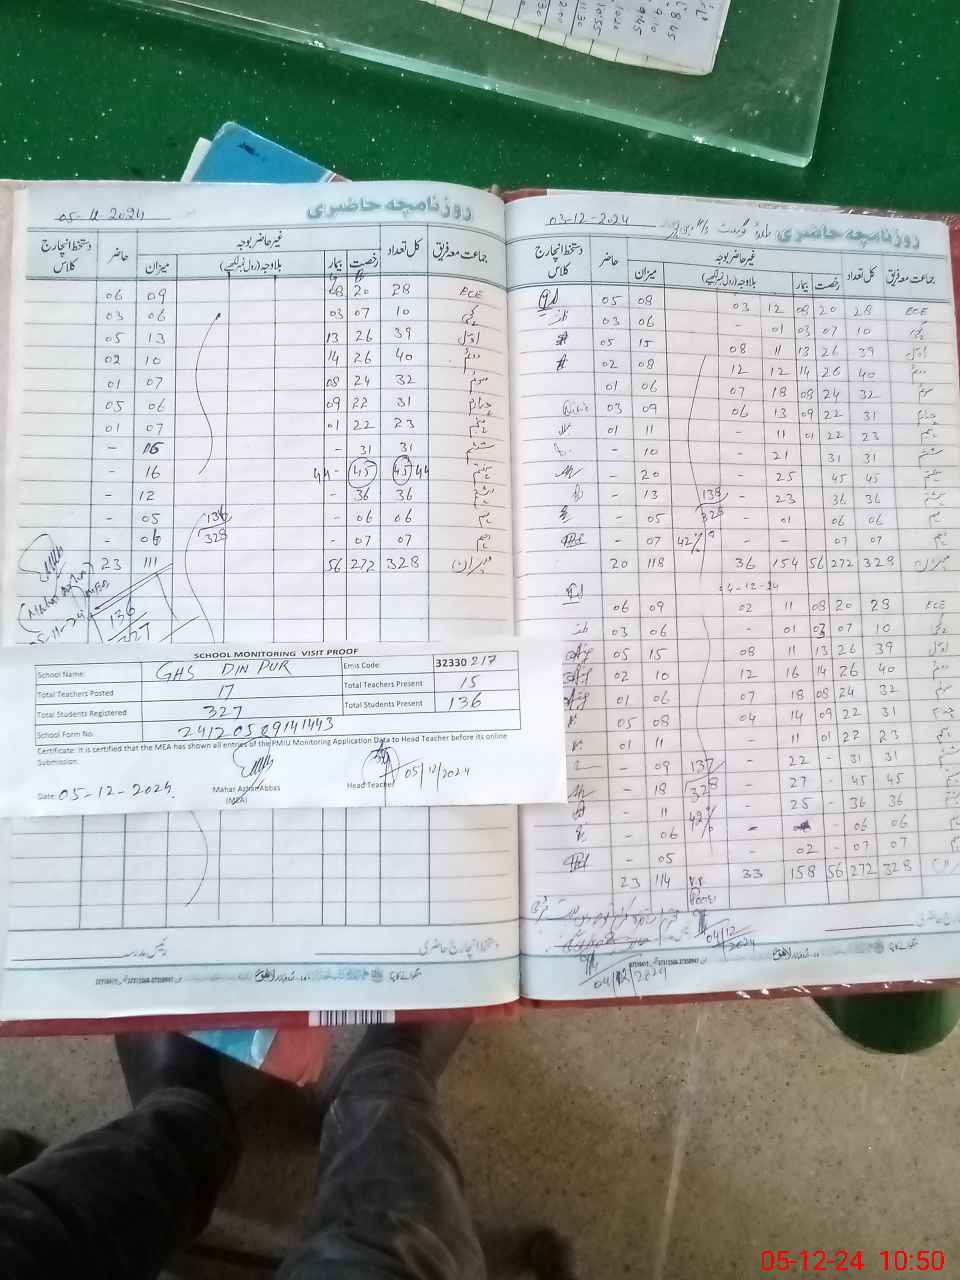 8 45
9 10
9 45
10 20
10 55
11 30
05-12-2024
روزنامچہ حاضری
جماعت معہ فریق کل تعداد رخصت بیمار غیر حاضر بوجہ بلا وجہ (رول نمبر لکھیے) میزان حاضر دستخط انچارج کلاس
06 09 08 20 28 ECE
03 06 03 07 10
05 13 13 26 39 اول
02 10 14 26 40 دوم
01 07 08 24 32 سوم
05 06 09 22 31 چہارم
01 07 01 22 23 پنجم
- 16 - 31 31 ششم
- 16 44 - 45 45 44 ہفتم
- 12 - 36 36 ہشتم
- 05 136 - 06 06 نہم
- 06 328 - 07 07 دہم
23 111 56 272 328 میزان
(Mahar Azhar)
MEA
05-11-24
136
327
SCHOOL MONITORING VISIT PROOF
School Name: GHS DIN PUR Emis Code: 32330 217
Total Teachers Posted 17 Total Teachers Present 15
Total Students Registered 327 Total Students Present 136
School Form No. 24120509141443
Certificate: It is certified that the MEA has shown all entries of the PMIU Monitoring Application Data to Head Teacher before its online
Submission.
Date: 05-12-2024 Mahar Azhar Abbas Head Teacher 05/12/2024
(MEA)
دستخط انچارج حاضری رئیس مدرسہ
03-12-2024
روزنامچہ حاضری
جماعت معہ فریق کل تعداد رخصت بیمار غیر حاضر بوجہ بلا وجہ (رول نمبر لکھیے) میزان حاضر دستخط انچارج کلاس
05 08 03 12 08 20 28 ECE
03 06 - 01 03 07 10
05 15 08 11 13 26 39 اول
02 08 12 12 14 26 40 دوم
01 06 07 18 08 24 32 سوم
03 09 06 13 09 22 31 چہارم
01 11 - 11 01 22 23 پنجم
- 10 - 21 31 31 ششم
- 20 - 25 45 45 ہفتم
- 13 138 - 23 36 36 ہشتم
- 05 328 - 01 06 06 نہم
- 07 42% - - 07 07 دہم
20 118 36 154 56 272 328 میزان
04-12-24
06 09 02 11 08 20 28 ECE
03 06 - 01 03 07 10
05 15 08 11 13 26 39 اول
02 10 12 16 14 26 40 دوم
01 06 07 18 08 24 32 سوم
05 08 04 14 09 22 31 چہارم
01 11 - 11 01 22 23 پنجم
- 09 137 - 22 - 31 31 ششم
- 18 328 - 27 - 45 45 ہفتم
- 11 42% - 25 - 36 36
- 06 - - 06 06 نہم
- 05 02 - 07 07 دہم
23 114 V.V Poor 33 158 56 272 328 میزان
04/12/2024
04/12/2024
دستخط انچارج حاضری
05-12-24 10:50